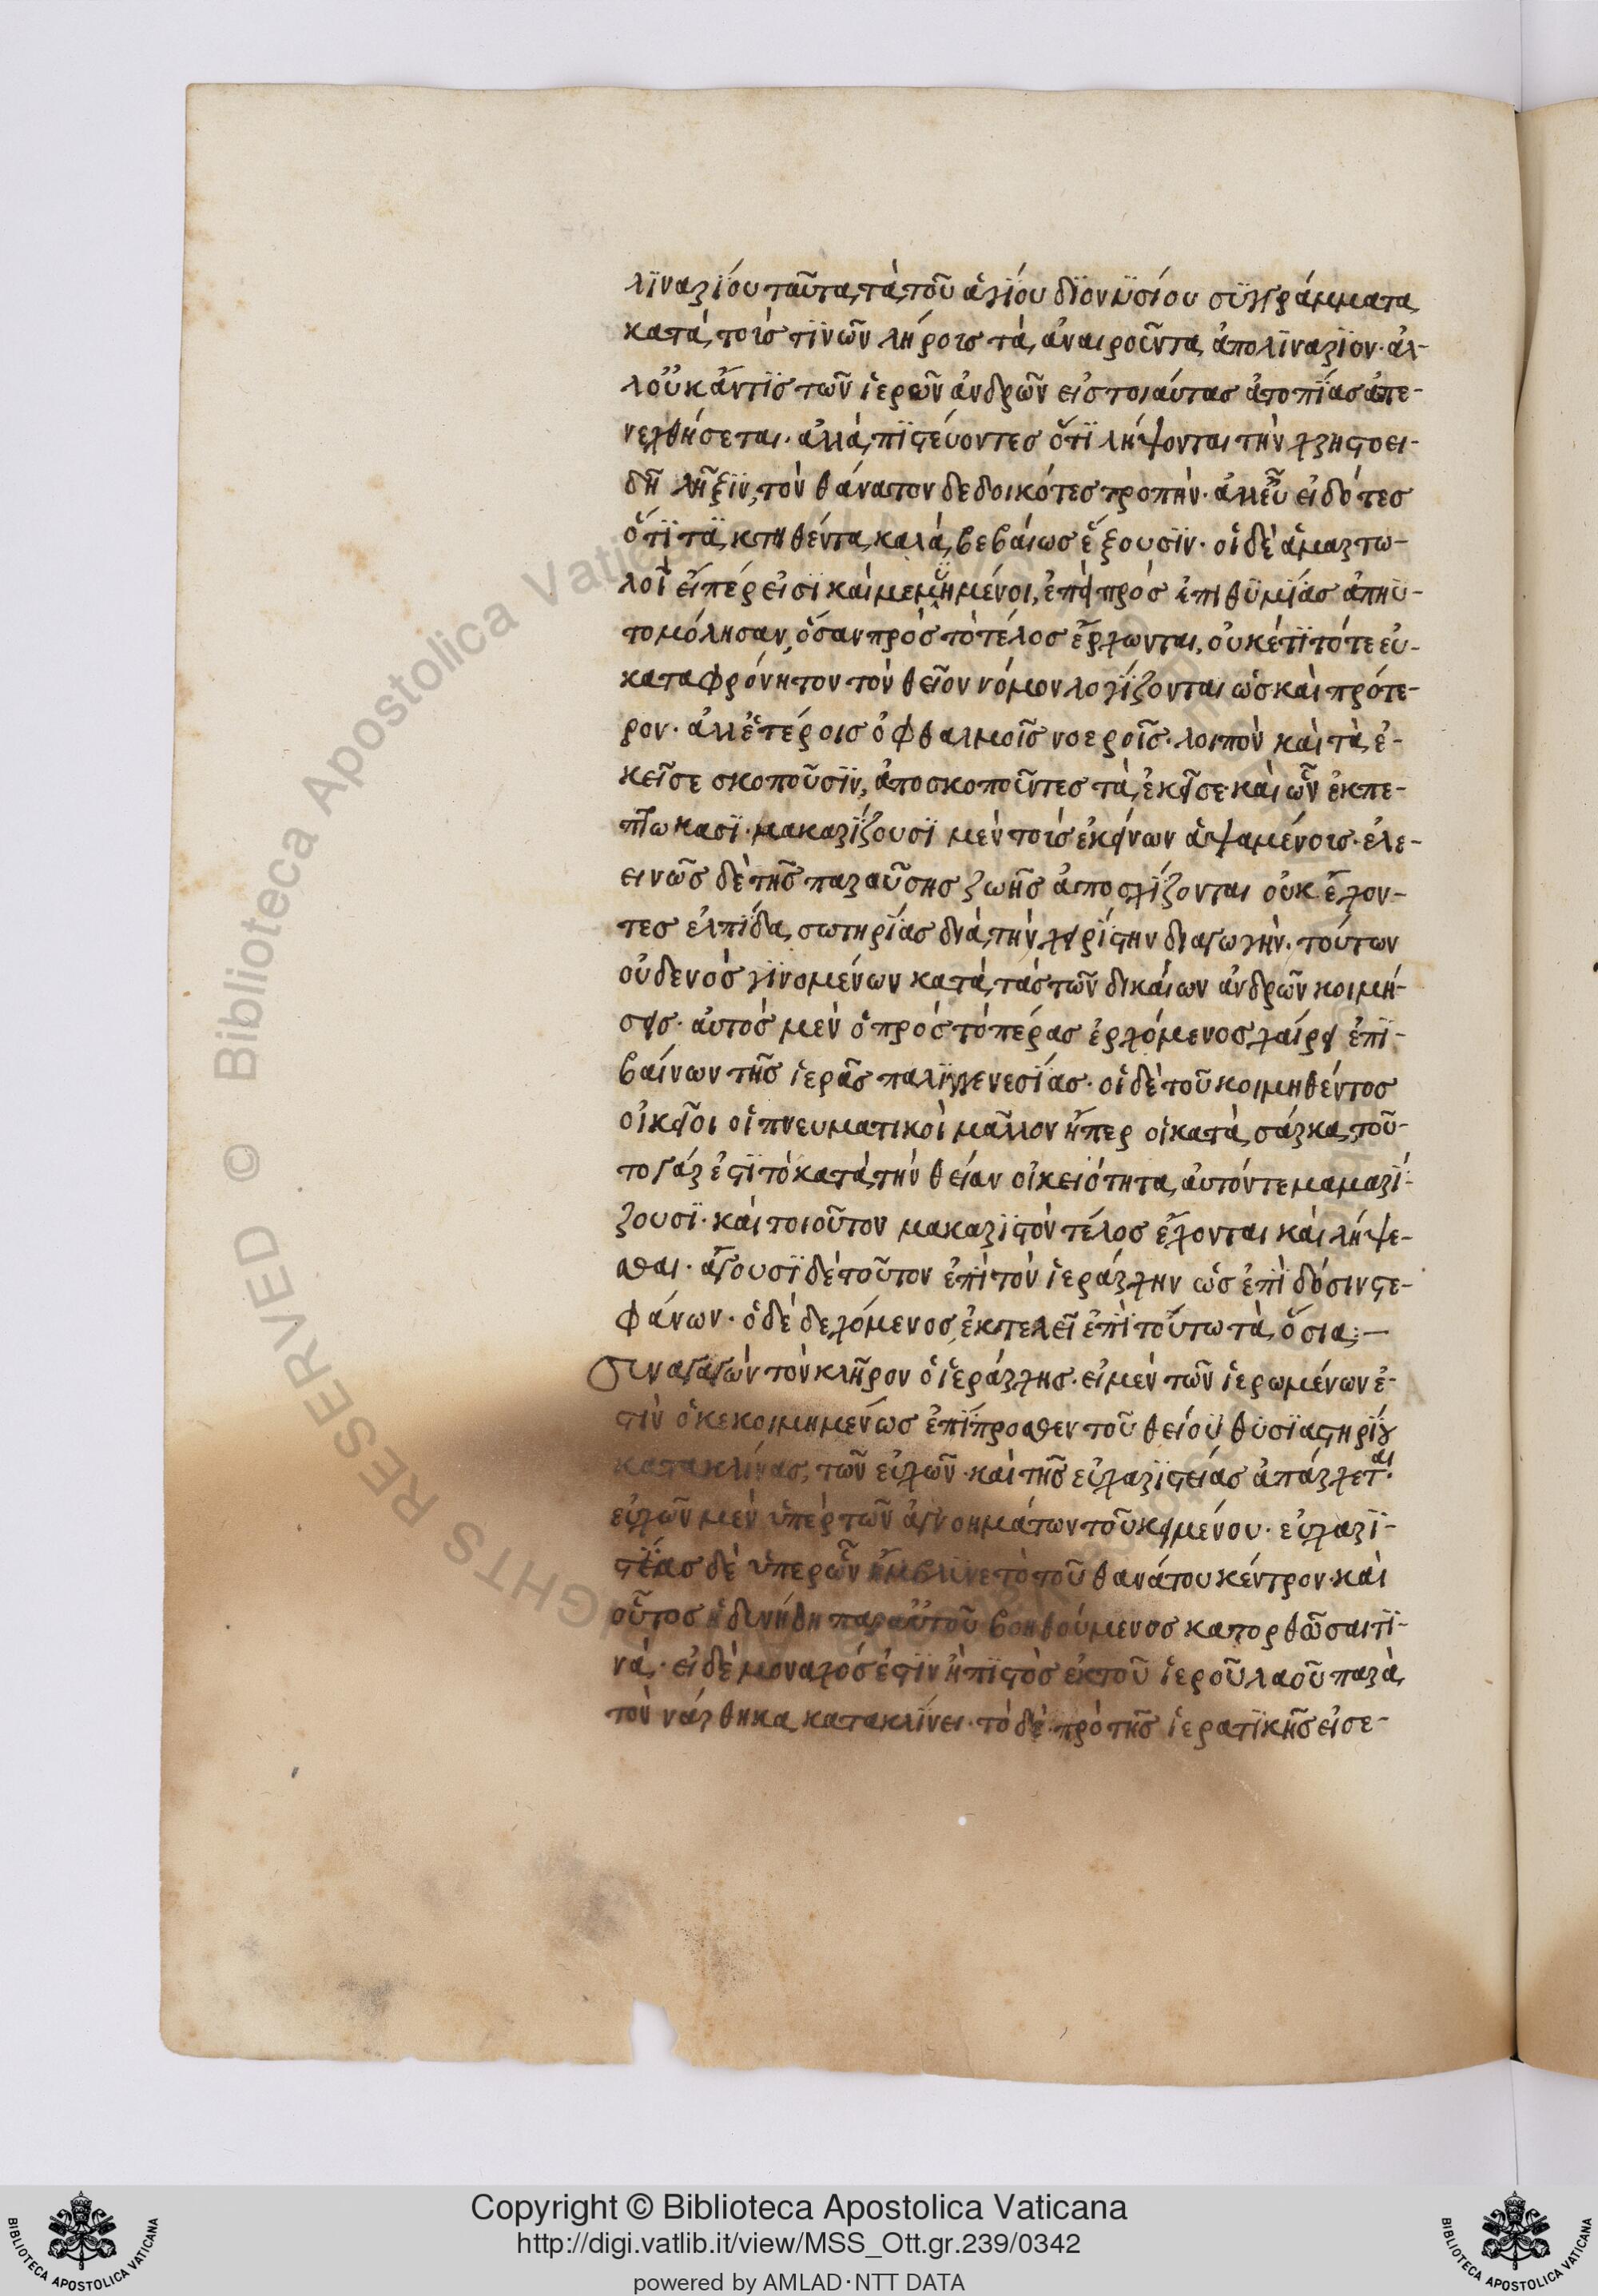 λϊναρίου ταῦτα, τὰ τοῦ ἁγίου διονυσίου συγγράμματα
κατὰ τοῖς τϊνῶν λήροις τὰ ἀναιροῦντα ἀπολϊναρϊον· ἀλ-
λοὐκ ἄντϊς τῶν ἱερῶν ἀνδρῶν εἰς τοιαύτας ἀτοπϊας ἀπε-
νεχθήσεται· ἀλλὰ πϊστεύοντες ὅτϊ λήψονται τὴν χρηστοει-
δῆ λῆξϊν, τὸν θάνατον δεδοικότες τροπὴν· ἀλλεὖ εἰδότες
ὅτϊ τὰ κτηθέντα καλὰ, βεβαίως ἕξουσϊν· οἱ δὲ ἁμαρτω-
λοὶ εἴπέρ εἰσϊ καὶ μεμυημένοι, ἐπει πρὸς ἐπιθϋμϊας ἀπηϋ-
τομόλησαν, ὅσαν πρὸς τὸ τέλος ἔρχωνται, οὐκέτϊ τότε εὐ-
καταφρόνητον τὸν θεῖον νόμον λογίζονται ὡς καὶ πρότε-
ρον· ἀλλἑτέροις ὀφθαλμοῖς νοεροῖς· λοιπὸν καὶ τὰ ἐ-
κεῖσε σκοποῦσϊν, ἀποσκοποῦντες τὰ ἐκεῖσε· καὶ ὧν ἐκπε-
πτώκασϊ· μακαρίζουσϊ μὲν τοῖς ἐκείνων ἁψαμένοις· ἐλε-
εινῶς δὲ τῆς παραύσης ζωῆς ἀποσχίζονται οὐκ ἔχον-
τες ἐλπίδα, σωτηρίας διὰ τὴν χειρίστην διαγωγὴν· τούτων
οὐδενὸς γϊνομένων κατὰ τὰς τῶν δικαίων ἀνδρῶν κοιμή-
σεις· αὐτὸς μὲν ὁ πρὸς τὸ πέρας ἐρχόμενος χαίρει ἐπϊ-
βαίνων τῆς ἱερᾶς παλϊγγενεσίας· οἱ δὲ τοῦ κοιμηθέντος
οἰκεῖοι οἱ πνευματικοὶ μᾶλλον ἤπερ οἱ κατὰ σάρκα, τοῦ-
το γάρ ἐστϊ τὸ κατὰ τὴν θείαν οἰκειότητα, αὐτόν τε μαμαρί-
ζουσϊ· καὶ τοιοῦτον μακαρϊστὸν τέλος εὔχονται καὶ λήψε-
σθαι· ἄγουσϊ δὲ τοῦτον ἐπὶ τὸν ἱεράρχην ὡς ἐπὶ δόσιν στε-
φάνων· ὁ δὲ δεχόμενος, ἐκτελεῖ ἐπὶ τούτω τὰ ὅσια;—
Συναγαγὼν τὸν κλῆρον ὁ ἱεράρχης· εἰ μὲν τῶν ἱερωμένων ἐ-
στὶν ὁ κεκοιμημένως ἐπίπροσθεν τοῦ θείου θυσϊαστηρίου
κατακλίνας, τῶν εὐχῶν· καὶ τῆς εὐχαρϊστείας ἀπάρχεται·
εὐχῶν μὲν ὑπὲρ τῶν ἀγνοημάτων τοῦ κειμένου· εὐχαρϊ-
στείας δὲ ὑπερὧν ἤμβλϋνε τὸ τοῦ θανάτου κέντρον· καὶ
οὗτος ἠδυνήθη παραὐτοῦ βοηθούμενος κατορθῶσαι τϊ-
νὰ· εἰ δὲ μοναχός ἐστϊν ἢ πϊστὸς ἐκ τοῦ ἱεροῦ λαοῦ παρὰ
τὸν νάρθηκα κατακλίνει· τὸ δὲ πρὸ τῆς ἱερατϊκῆς εἰσε-
Copyright © Biblioteca Apostolica Vaticana
http://digi.vatlib.it/view/MSS_Ott.gr.239/0342
powered by AMLAD·NTT DATA